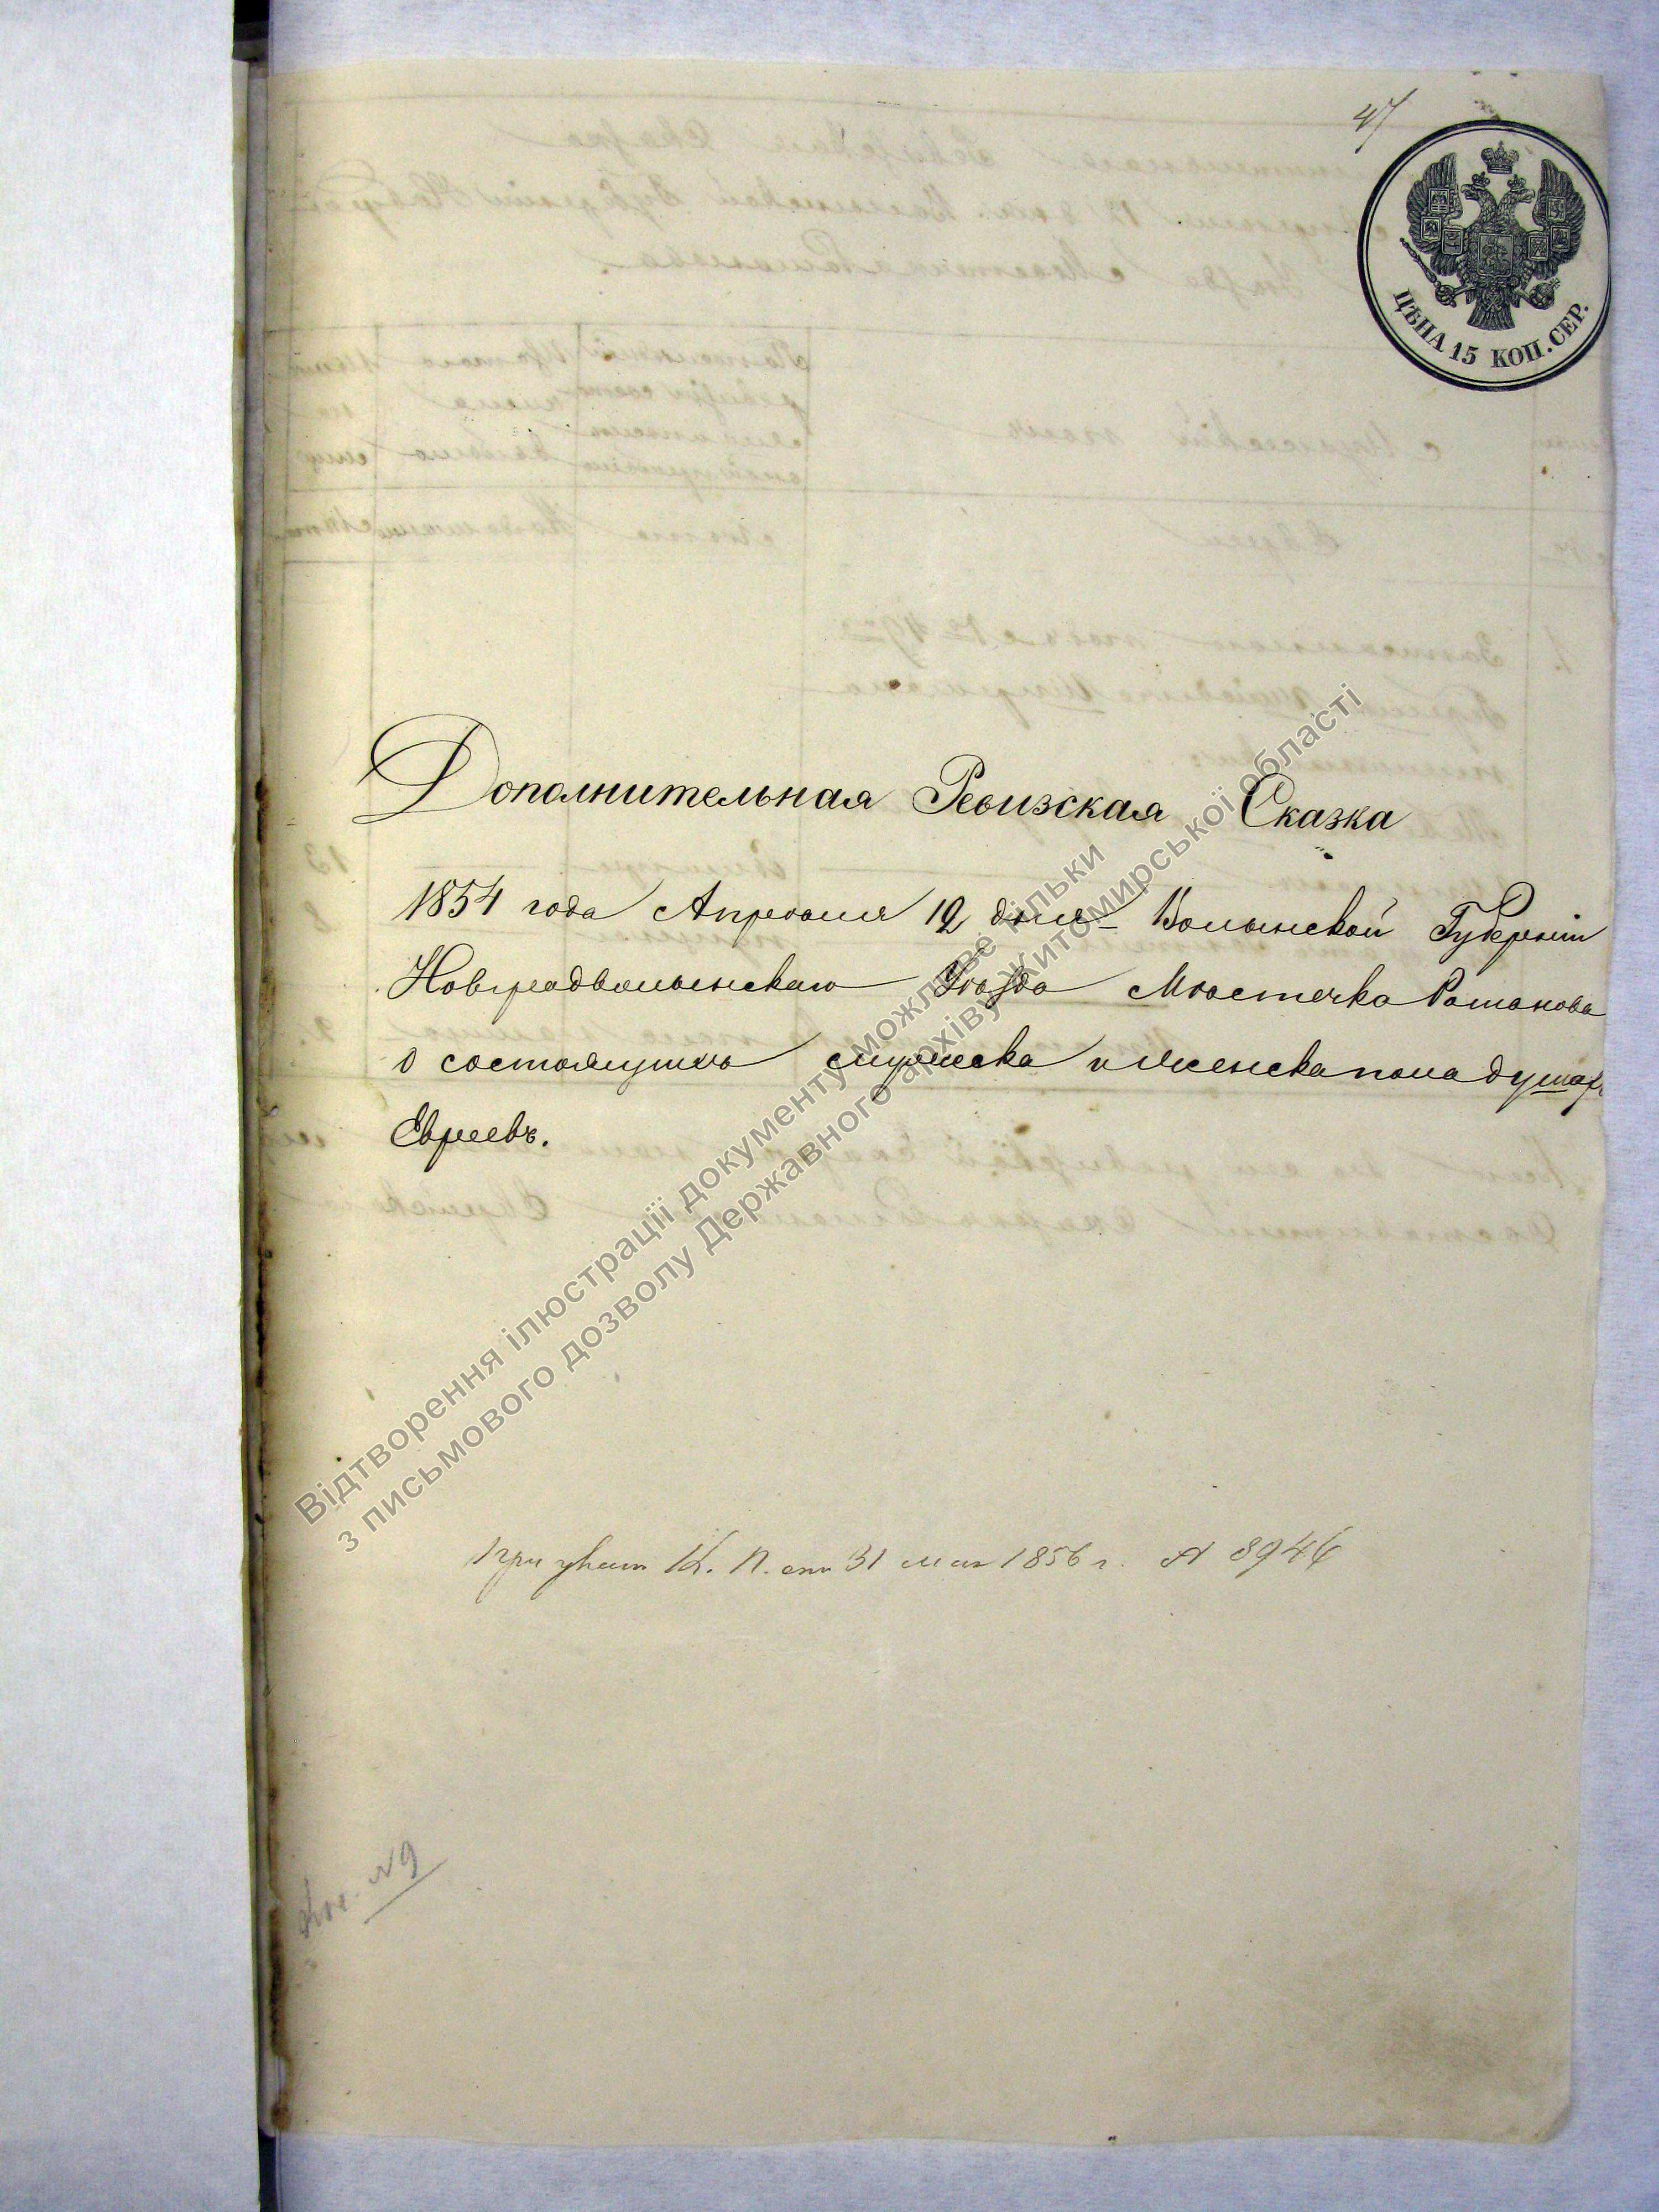 47
ЦѢНА 15 КОП. СЕР.
Дополнительная Ревизская Сказка
1854 года Апреля 12 дня Волынской Губерніи
Новградволынскаго Уѣзда Мѣстечка Романова
о состоящихъ мужеска и женска пола душахъ
Евреевъ.
При указѣ К. П. отъ 31 мая 1856 г. № 8946
№ 9
Відтворення ілюстрації документу можливе тільки
з письмового дозволу Державного архіву Житомирської області